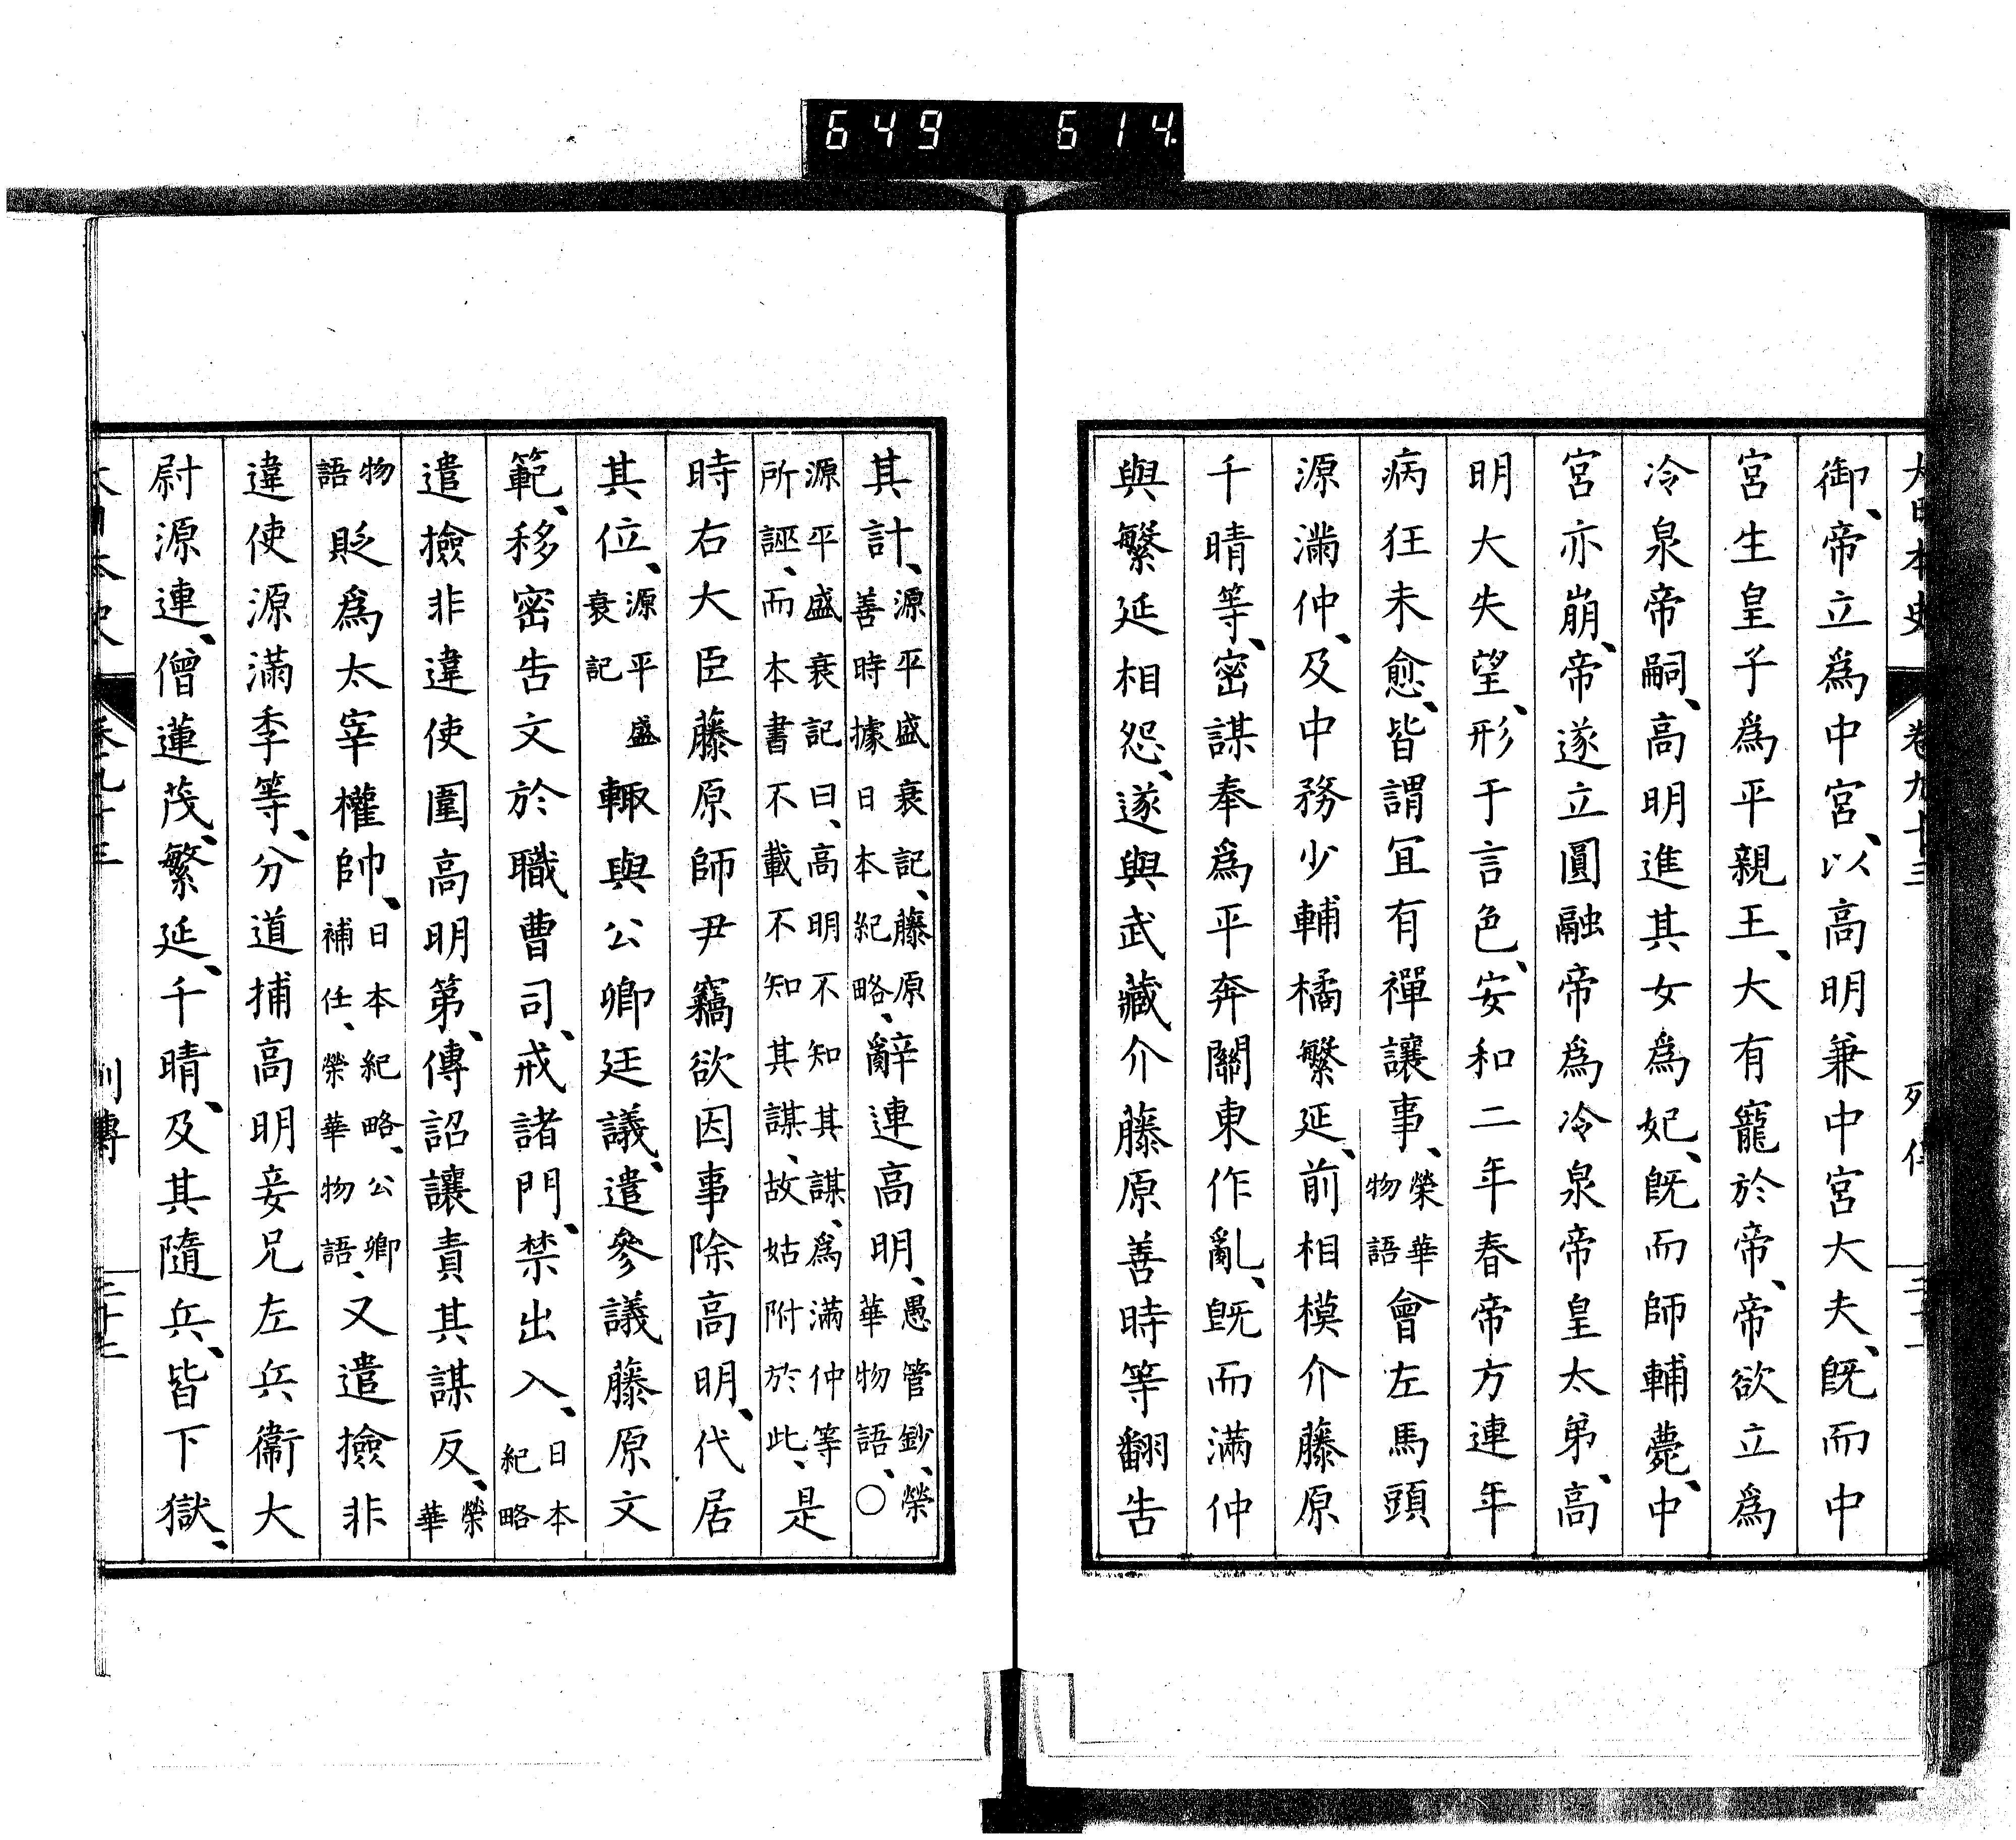 649 614
大日本史 卷九十三 列傳
御、帝立爲中宮、以高明兼中宮大夫、既而中
宮生皇子爲平親王、大有寵於帝、帝欲立爲
冷泉帝嗣、高明進其女爲妃、既而師輔薨、中
宮亦崩、帝遂立圓融帝爲冷泉帝皇太弟、高
明大失望、形于言色、安和二年春帝方連年
病狂未愈、皆謂宜有禪讓事、榮華物語會左馬頭
源滿仲、及中務少輔橘繁延、前相模介藤原
千晴等、密謀奉爲平奔關東作亂、既而滿仲
與繁延相怨、遂與武藏介藤原善時等翻告
其計、源平盛衰記、藤原善時據日本紀略、辭連高明、愚管鈔、榮華物語、〇
源平盛衰記曰、高明不知其謀、爲滿仲等所誣、而本書不載不知其謀、故姑附於此、是
時右大臣藤原師尹竊欲因事除高明、代居
其位、源平盛衰記輙與公卿廷議、遣參議藤原文
範、移密告文於職曹司、戒諸門、禁出入、日本紀略
遣撿非違使圍高明第、傳詔讓責其謀反、榮華
物語貶爲太宰權帥、日本紀略、公卿補任、榮華物語、又遣撿非
違使源滿季等、分道捕高明妾兄左兵衞大
尉源連、僧蓮茂、繁延、千晴、及其隨兵、皆下獄、
大日本史 卷九十三 列傳 三十二